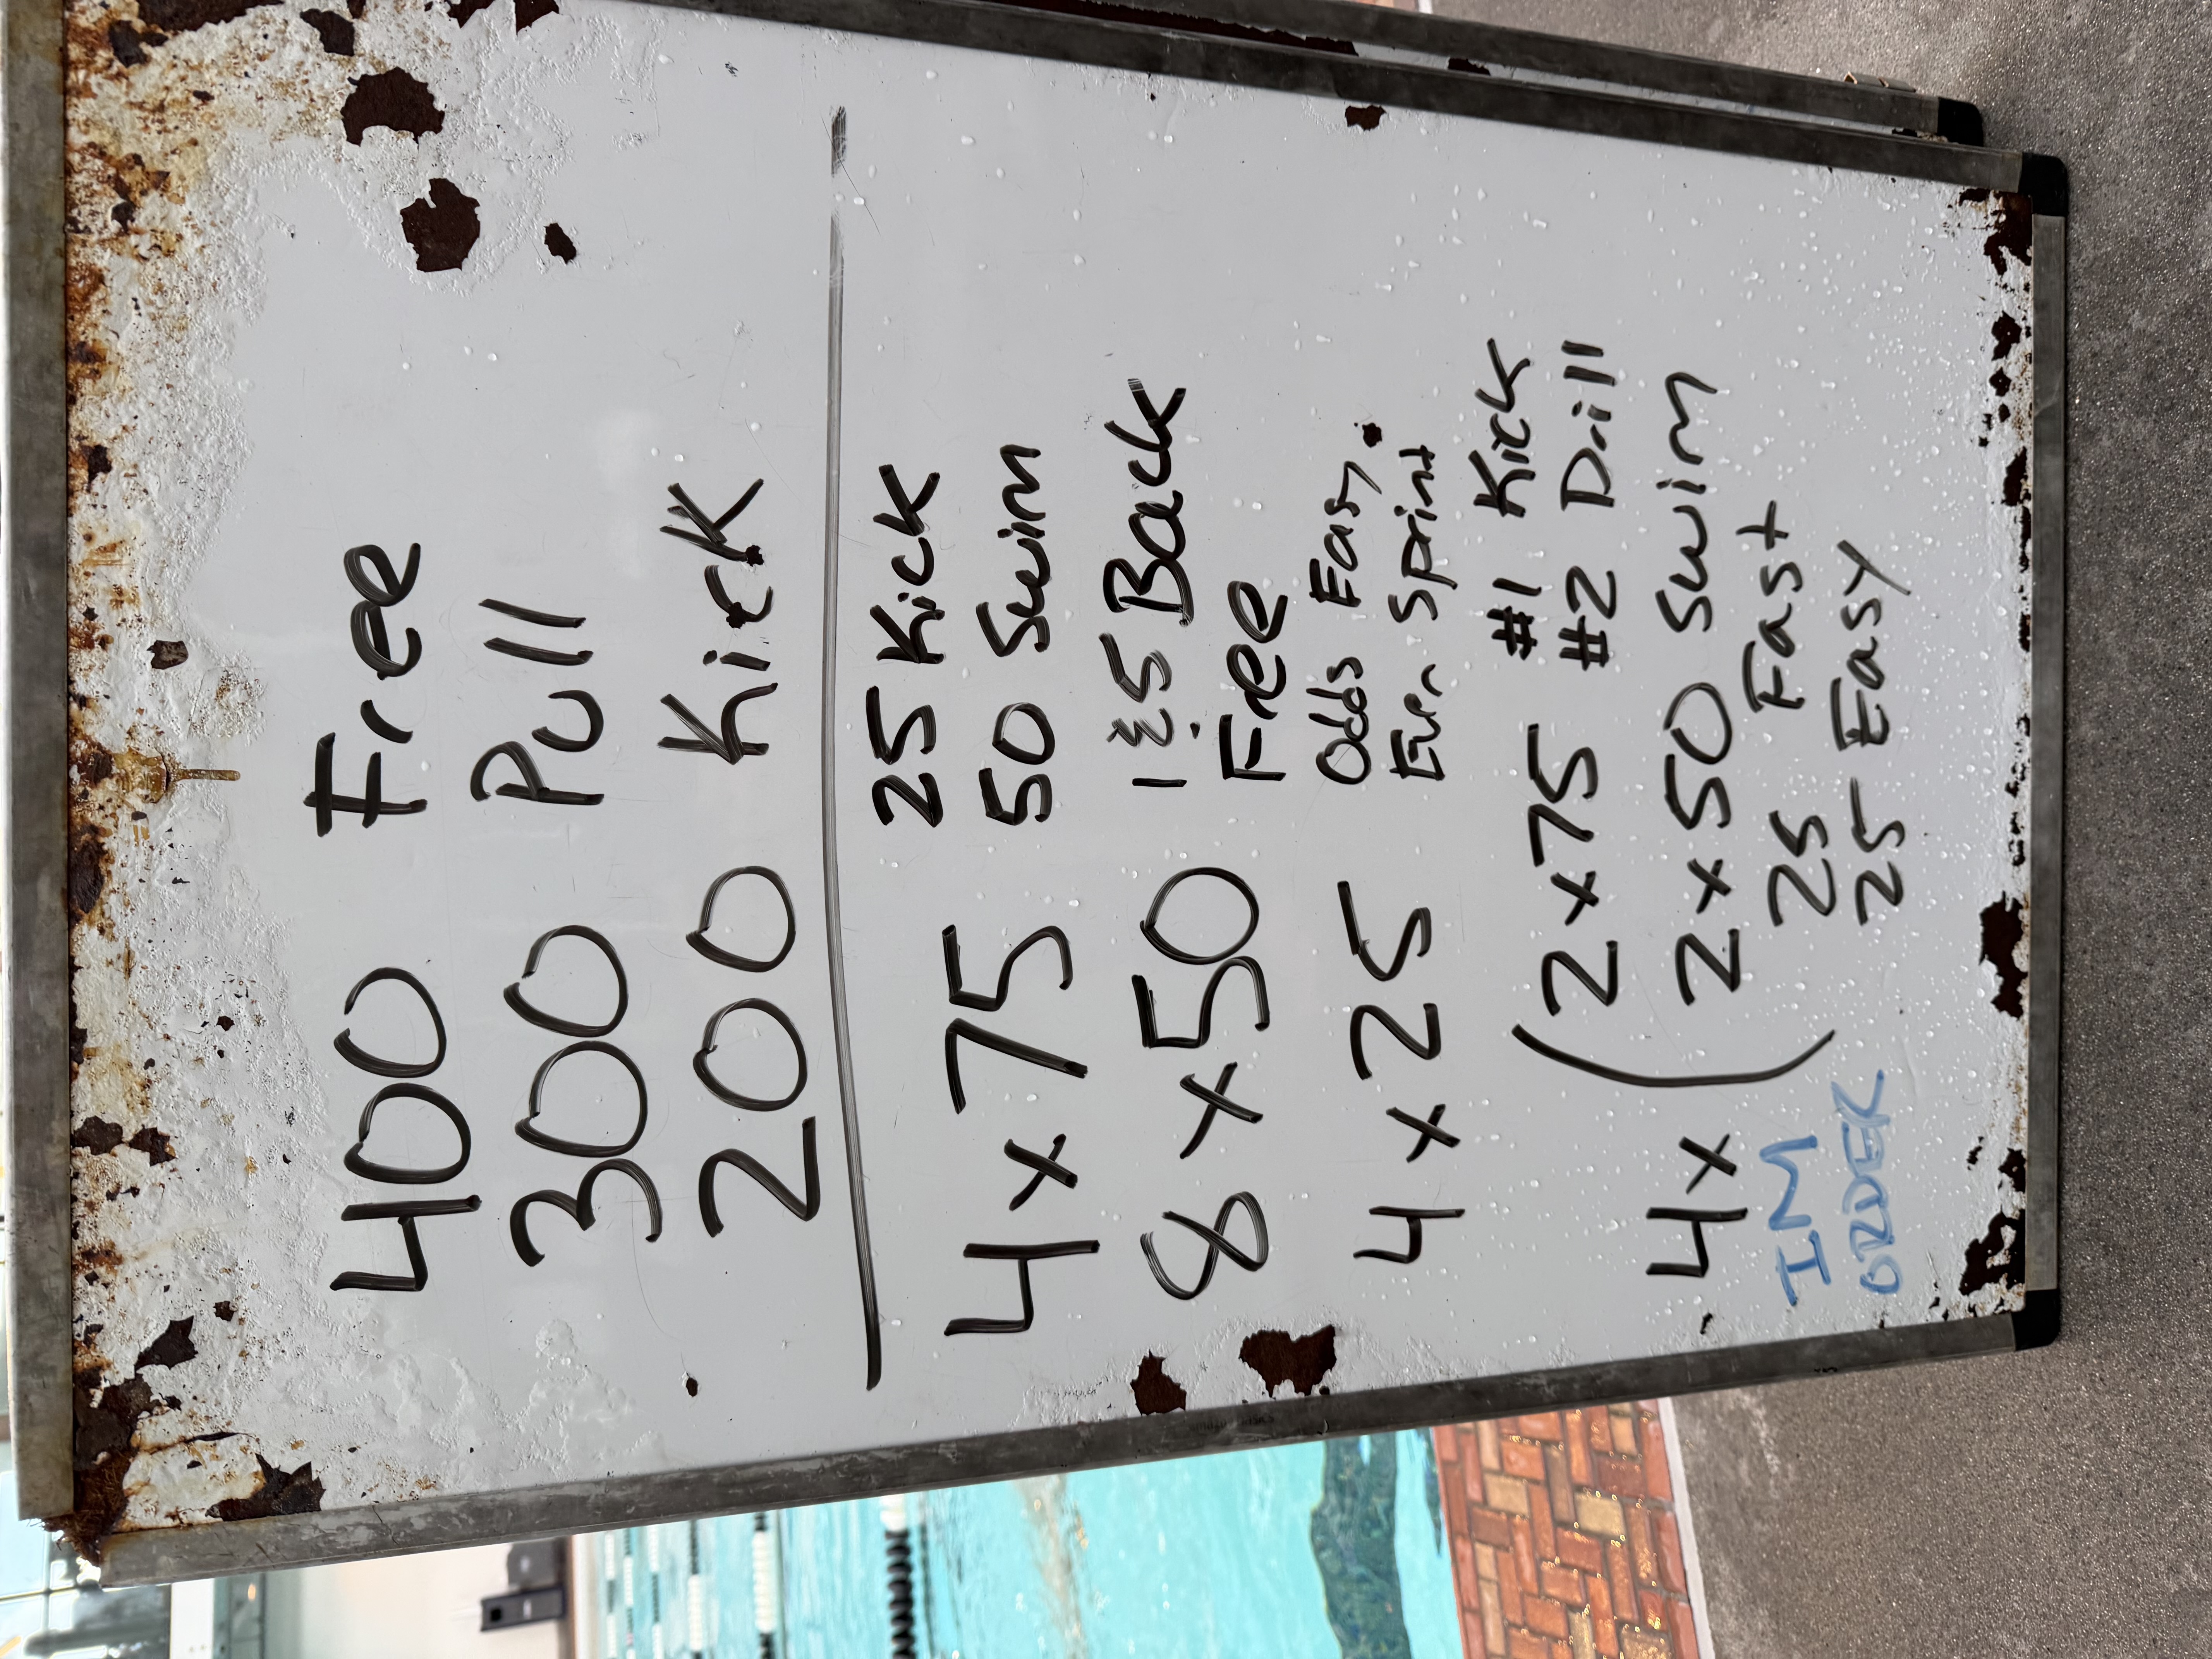 400 Free
300 Pull
200 Kick
4 x 75 25 Kick
50 Swim
8 x 50 1 & 5 Back
Free
4 x 25 Odds Easy
Even Sprint
4x ( 2 x 75 #1 Kick
#2 Drill
2 x 50 Swim
25 Fast
25 Easy
IM
ORDER